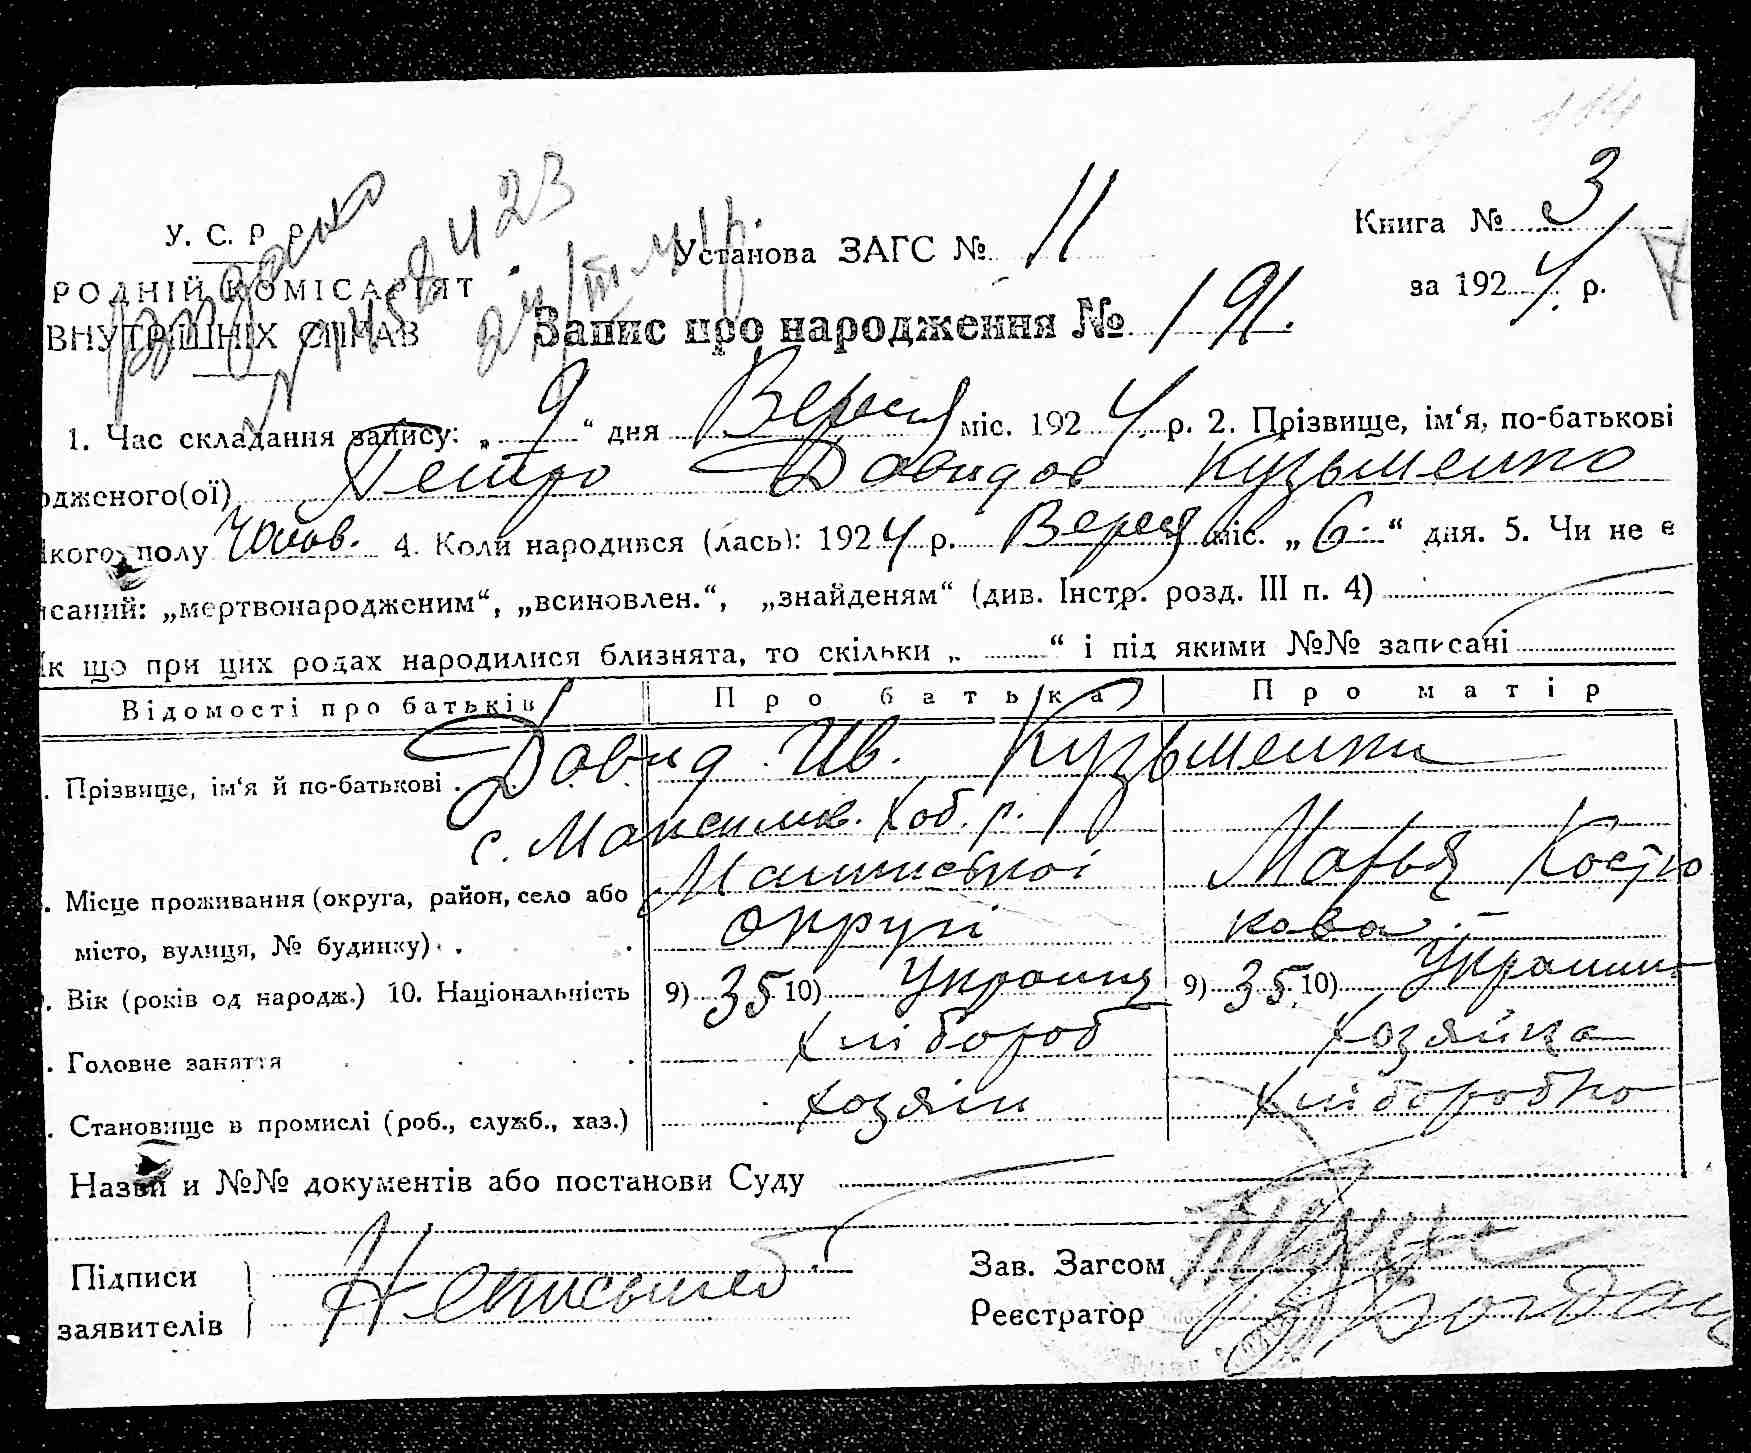 У. С. Р. Р.
Установа ЗАГС № 11
Книга № 3
РОДНІЙ КОМІСАРІЯТ
за 1924 р.
ВНУТРІШНІХ СПРАВ
Запис про народження № 191.
1. Час складання запису: „9“ дня Вересня міс. 1924 р. 2. Прізвище, ім‘я, по-батькові
одженого(ої) Петро Давидов Кузьменко
кого полу Чолов. 4. Коли народився (лась): 1924 р. Вересня міс. „6“ дня. 5. Чи не є
исаний: „мертвонародженим“, „всиновлен.“, „знайденям“ (див. Інстр. розд. III п. 4)
к що при цих родах народилися близнята, то скільки „ “ і під якими №№ записані
Відомості про батьків Про батька Про матір
. Прізвище, ім‘я й по-батькові . Давид Ив. Кузьменки
с. Максимв. Хоб. р.
. Місце проживання (округа, район, село або Марья Костю
місто, вулиця, № будинку) округі кова
. Вік (років од народж.) 10. Національність 9) 35 10) Украинц 9) 35 10) Украин
. Головне заняття хлібороб хозяйка
. Становище в промислі (роб., служб., хаз.) хозяін хліборобка
Назви и №№ документів або постанови Суду
Підписи
заявителів
Неписьмен
Зав. Загсом
Реєстратор Богдан